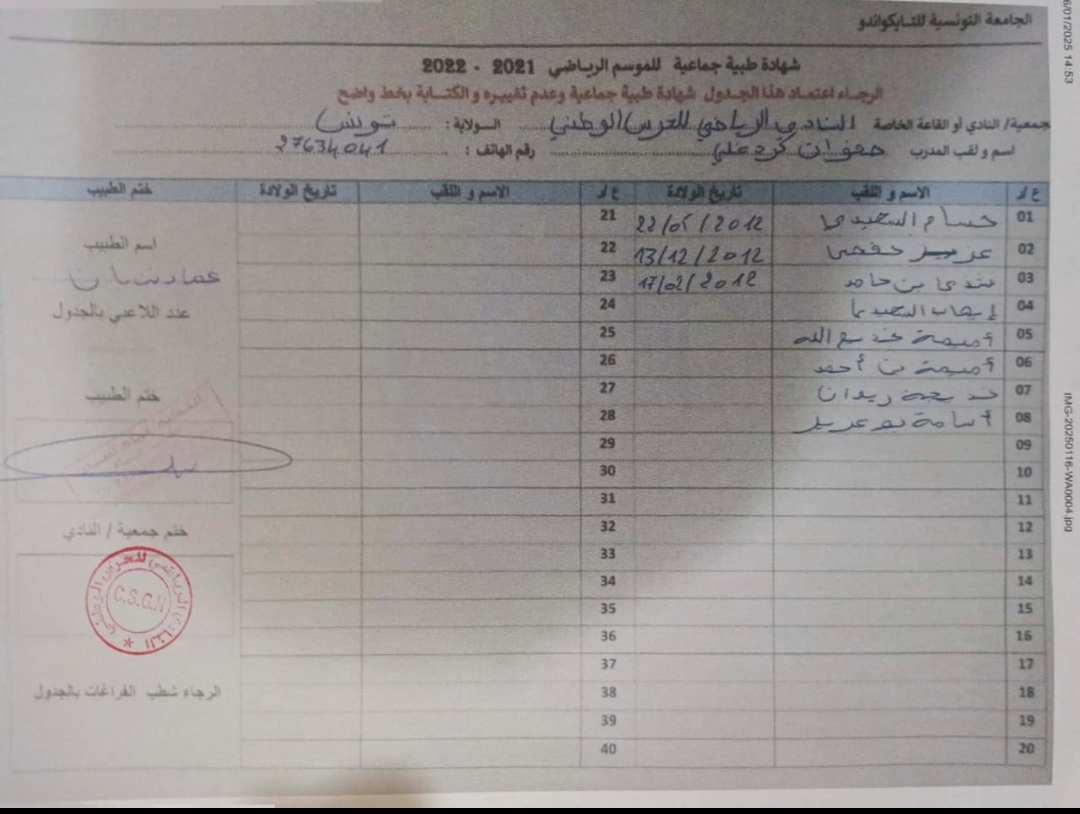 الجامعة التونسية للتايكواندو
شهادة طبية جماعية للموسم الرياضي 2021 - 2022
الرجاء اعتماد هذا الجدول شهادة طبية جماعية وعدم تغييره و الكتابة بخط واضح
جمعية/ النادي أو القاعة الخاصة النادي الرياضي للحرس الوطني الولاية : تونس
اسم و لقب المدرب صفوان كردغلي رقم الهاتف : 27634041
ع/ر الاسم و اللقب تاريخ الولادة ع/ر الاسم و اللقب تاريخ الولادة ختم الطبيب
01 حسام السعيدي 22/05/2012 21
02 عزيز حفصي 13/12/2012 22
03 بن حامد 17/02/2012 23
04 إيهاب السعيدي 24
05 أميمة 25
06 أميمة بن أحمد 26
07 خديجة زيدان 27
08 أسامة بوعزيز 28
09 29
10 30
11 31
12 32
13 33
14 34
15 35
16 36
17 37
18 38
19 39
20 40
اسم الطبيب
عماد
عدد اللاعبي بالجدول
ختم الطبيب
ختم جمعية / النادي
النادي الرياضي للحرس الوطني
C.S.G.N
الرجاء شطب الفراغات بالجدول
6/01/2025 14:53
IMG-20250116-WA0004.jpg